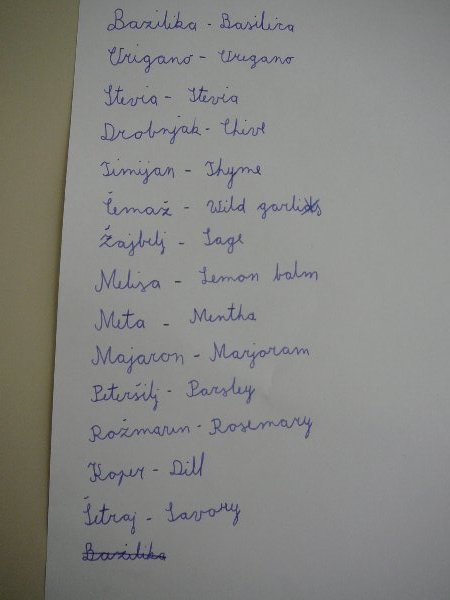 Bazilika - Basilica
Origano - Oregano
Stevia - Stevia
Drobnjak - Chive
Timijan - Thyme
Čemaž - Wild garlic
Žajbelj - Sage
Melisa - Lemon balm
Meta - Mentha
Majaron - Marjoram
Peteršilj - Parsley
Rožmarin - Rosemary
Koper - Dill
Šetraj - Savory
Bazilika